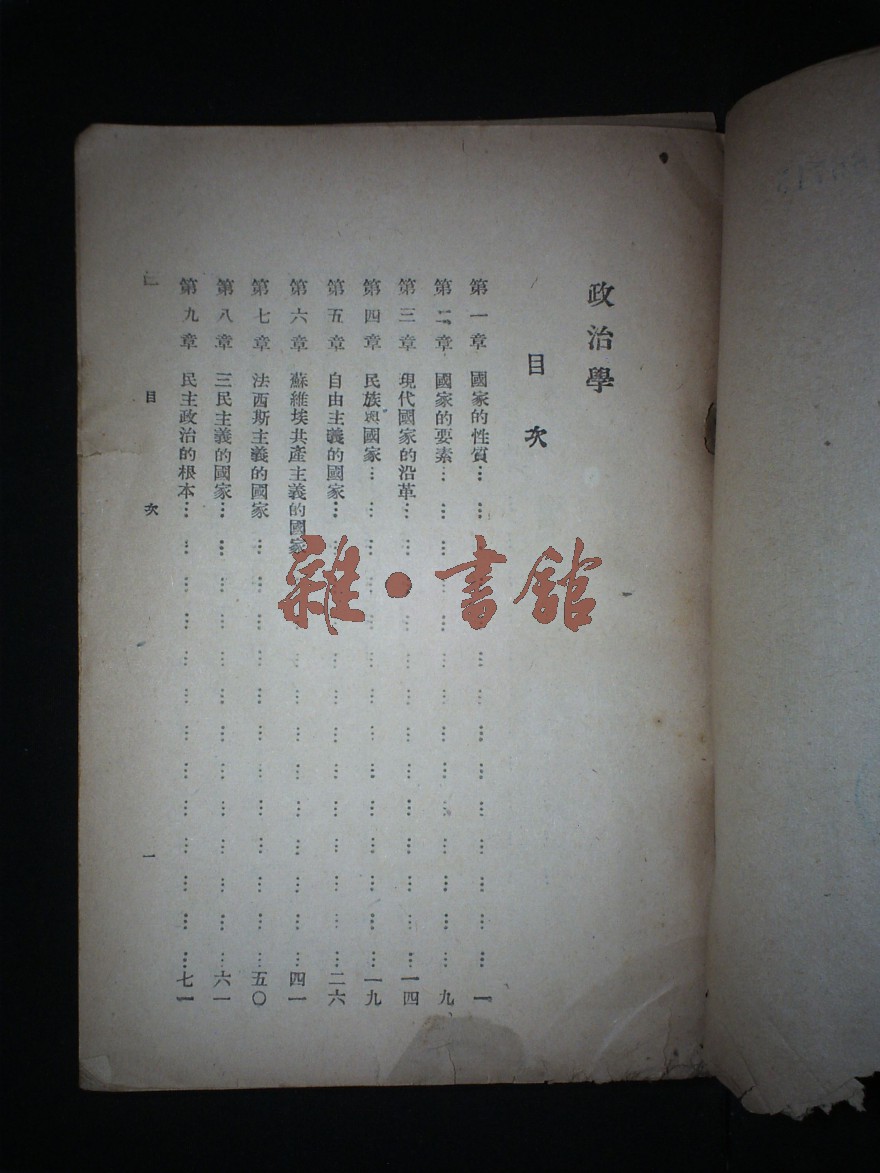 政治學
目次
第一章 國家的性質………一
第二章 國家的要素………九
第三章 現代國家的沿革………一四
第四章 民族與國家………一九
第五章 自由主義的國家………二六
第六章 蘇維埃共產主義的國家………四一
第七章 法西斯主義的國家………五〇
第八章 三民主義的國家………六一
第九章 民主政治的根本………七一
目次 一
雜·書館